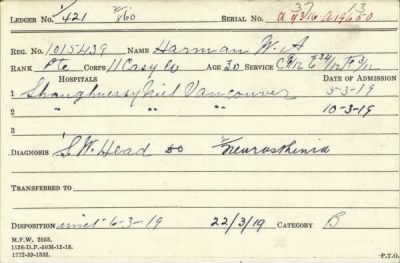 LEDGER NO. 1/421 2/860 SERIAL NO. 37 13
REG. NO. 1015439 NAME Harman W. A
RANK Pte CORPS 11 Casy Co AGE 30 SERVICE
HOSPITALS DATE OF ADMISSION
1 Shaughnessy Mil Vancouver 5-3-19
1 " " " 10-3-19
2
3
DIAGNOSIS S.W. Head 2/Neurosthenia
TRANSFERRED TO
DISPOSITION 6-3-19 22/3/19 CATEGORY B
M.F.W. 2553.
1126-D.P.-50M-12-18.
1772-39-1832. P.T.O.